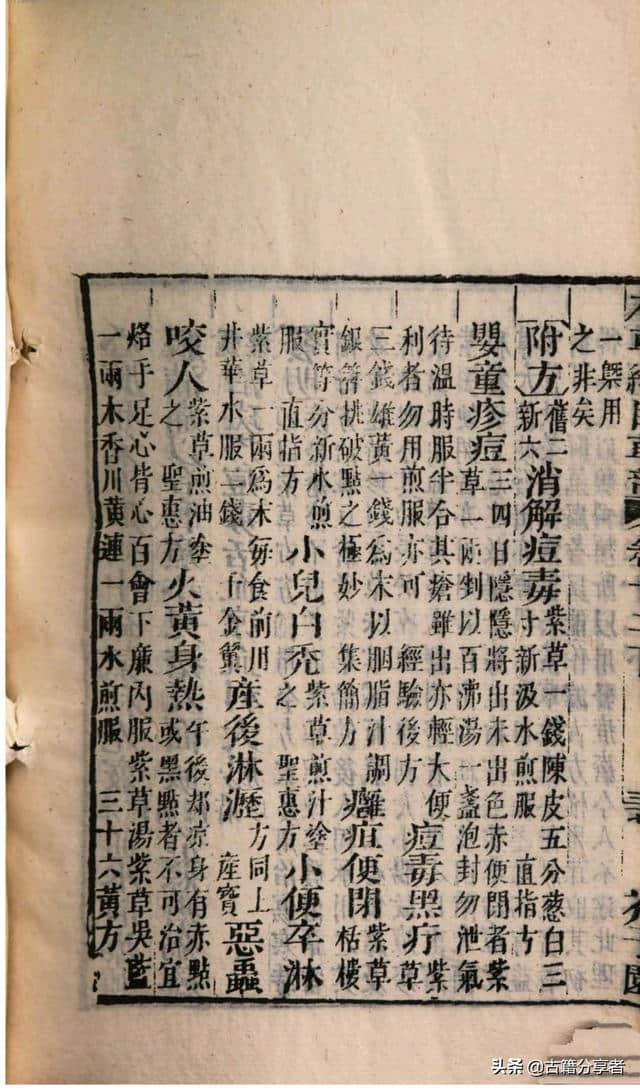 一槩用之非矣
附方舊二新六消解痘毒紫草一錢陳皮五分葱白三寸新汲水煎服 直指方
嬰童疹痘三四日隱隱將出未出色赤便閉者紫草一兩剉以百沸湯一盞泡封勿泄氣
待溫時服半合其瘡雖出亦輕大便利者勿用煎服亦可 經驗後方 痘毒黑疔紫草
三錢雄黃一錢爲末以胭脂汁調銀簪挑破點之極妙 集簡方 癰疽便閉紫草栝樓
實等分新水煎服 直指方 小兒白禿紫草煎汁塗之 聖惠方 小便卒淋
紫草一兩爲末每食前用井華水服二錢 千金翼 産後淋瀝方同上 産寶 惡蟲
咬人紫草煎油塗之 聖惠方 火黃身熱午後却凉身有赤點或黑點者不可治宜
烙手足心背心百會下廉內服紫草湯紫草吳藍一兩木香川黃連一兩水煎服 三十六黃方
头条 @古籍分享者